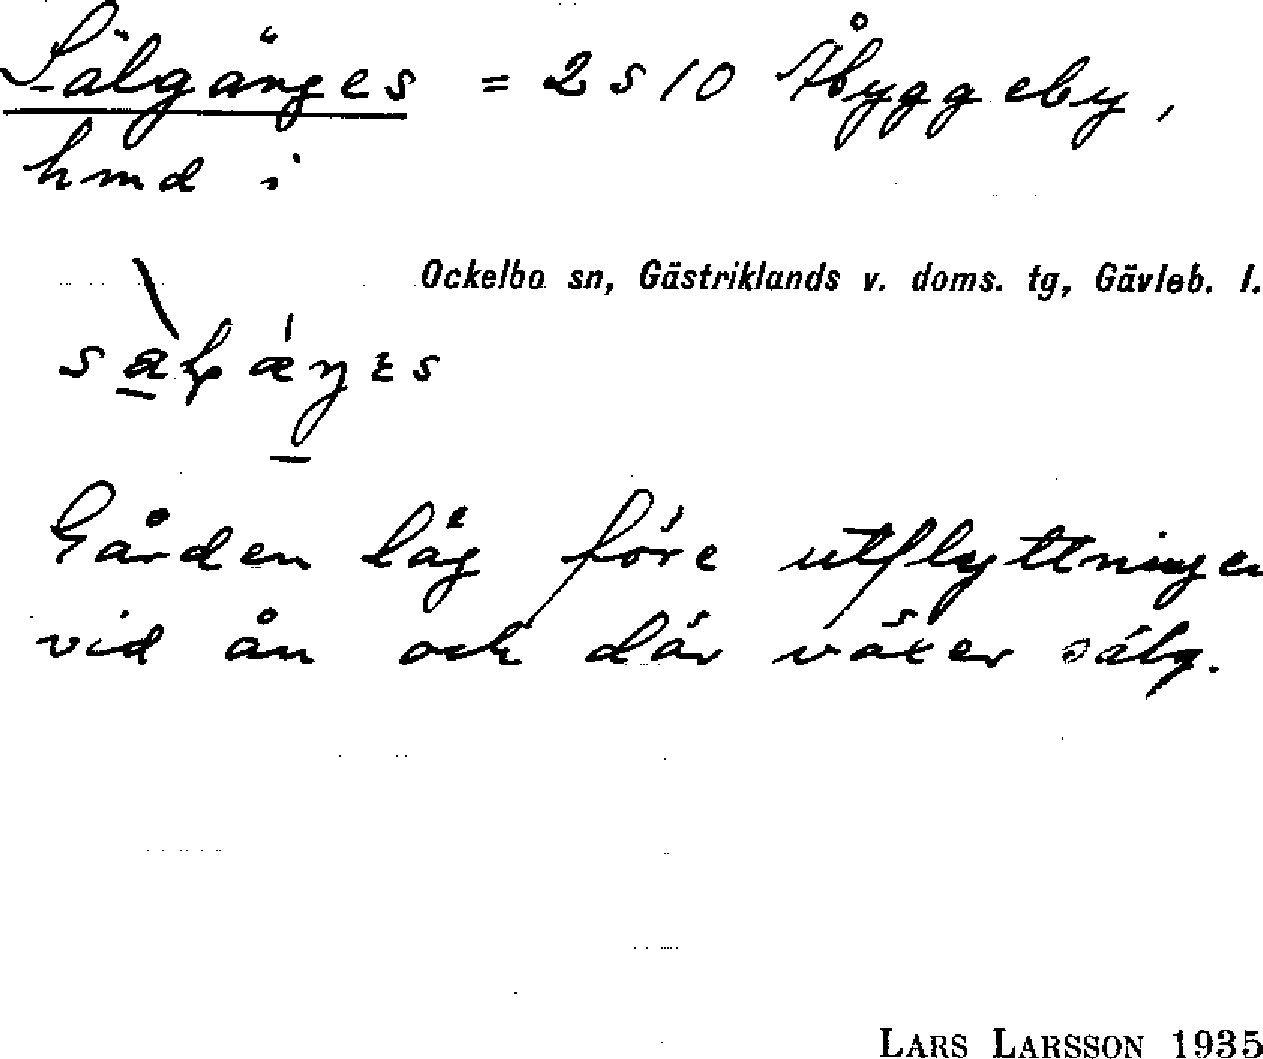 Sälgänges = 2 s / 0 Åbyggeby,
hmd i
Ockelbo sn, Gästriklands v. doms. tg, Gävleb. l.
Gården låg före utflyttningen
vid ån och där växer sälg.
LARS LARSSON 1935